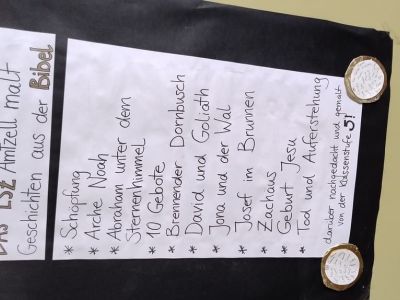 DAS LSZ Amtzell malt
Geschichten aus der Bibel
* Schöpfung
* Arche Noah
* Abraham unter dem
Sternenhimmel
* 10 Gebote
* Brennender Dornbusch
* David und Goliath
* Jona und der Wal
* Josef im Brunnen
* Zachäus
* Geburt Jesu
* Tod und Auferstehung
darüber nachgedacht und gemalt
von der Klassenstufe 5!